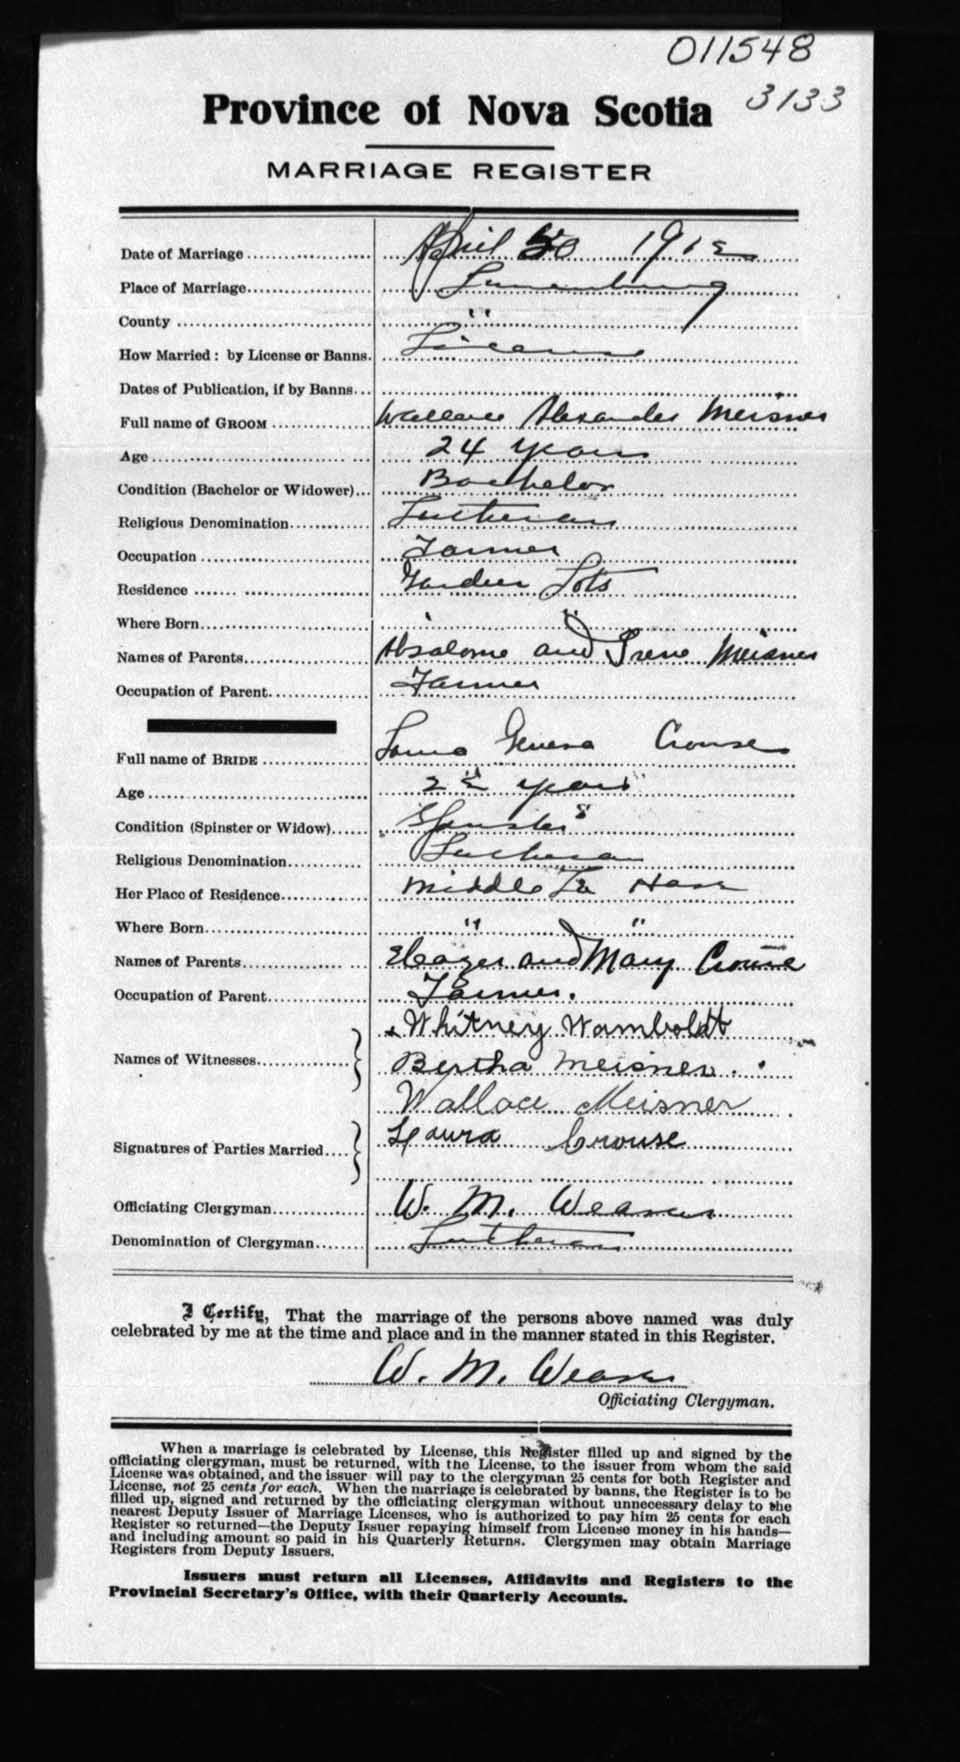 011548
3133
Province of Nova Scotia
MARRIAGE REGISTER
Date of Marriage April 30 1912
Place of Marriage Lunenburg
County " "
How Married: by License or Banns. License
Dates of Publication, if by Banns
Full name of GROOM Wallace Alexander Meisner
Age 24 years
Condition (Bachelor or Widower) Bachelor
Religious Denomination Lutheran
Occupation Farmer
Residence Garden Lots
Where Born " "
Names of Parents Absalome and Irene Meisner
Occupation of Parent Farmer
Full name of BRIDE Laura Geneva Crouse
Age 22 years
Condition (Spinster or Widow) Spinster
Religious Denomination Lutheran
Her Place of Residence Middle La Have
Where Born " "
Names of Parents Eleazer and Mary Crouse
Occupation of Parent Farmer.
Names of Witnesses Whitney Wamboldt
Bertha Meisner.
Signatures of Parties Married Wallace Meisner
Laura Crouse
Officiating Clergyman W. M. Weaver
Denomination of Clergyman Lutheran
I Certify, That the marriage of the persons above named was duly
celebrated by me at the time and place and in the manner stated in this Register.
W. M. Weaver
Officiating Clergyman.
When a marriage is celebrated by License, this Register filled up and signed by the
officiating clergyman, must be returned, with the License, to the issuer from whom the said
License was obtained, and the issuer will pay to the clergyman 25 cents for both Register and
License, not 25 cents for each. When the marriage is celebrated by banns, the Register is to be
filled up, signed and returned by the officiating clergyman without unnecessary delay to the
nearest Deputy Issuer of Marriage Licenses, who is authorized to pay him 25 cents for each
Register so returned—the Deputy Issuer repaying himself from License money in his hands—
and including amount so paid in his Quarterly Returns. Clergymen may obtain Marriage
Registers from Deputy Issuers.
Issuers must return all Licenses, Affidavits and Registers to the
Provincial Secretary's Office, with their Quarterly Accounts.